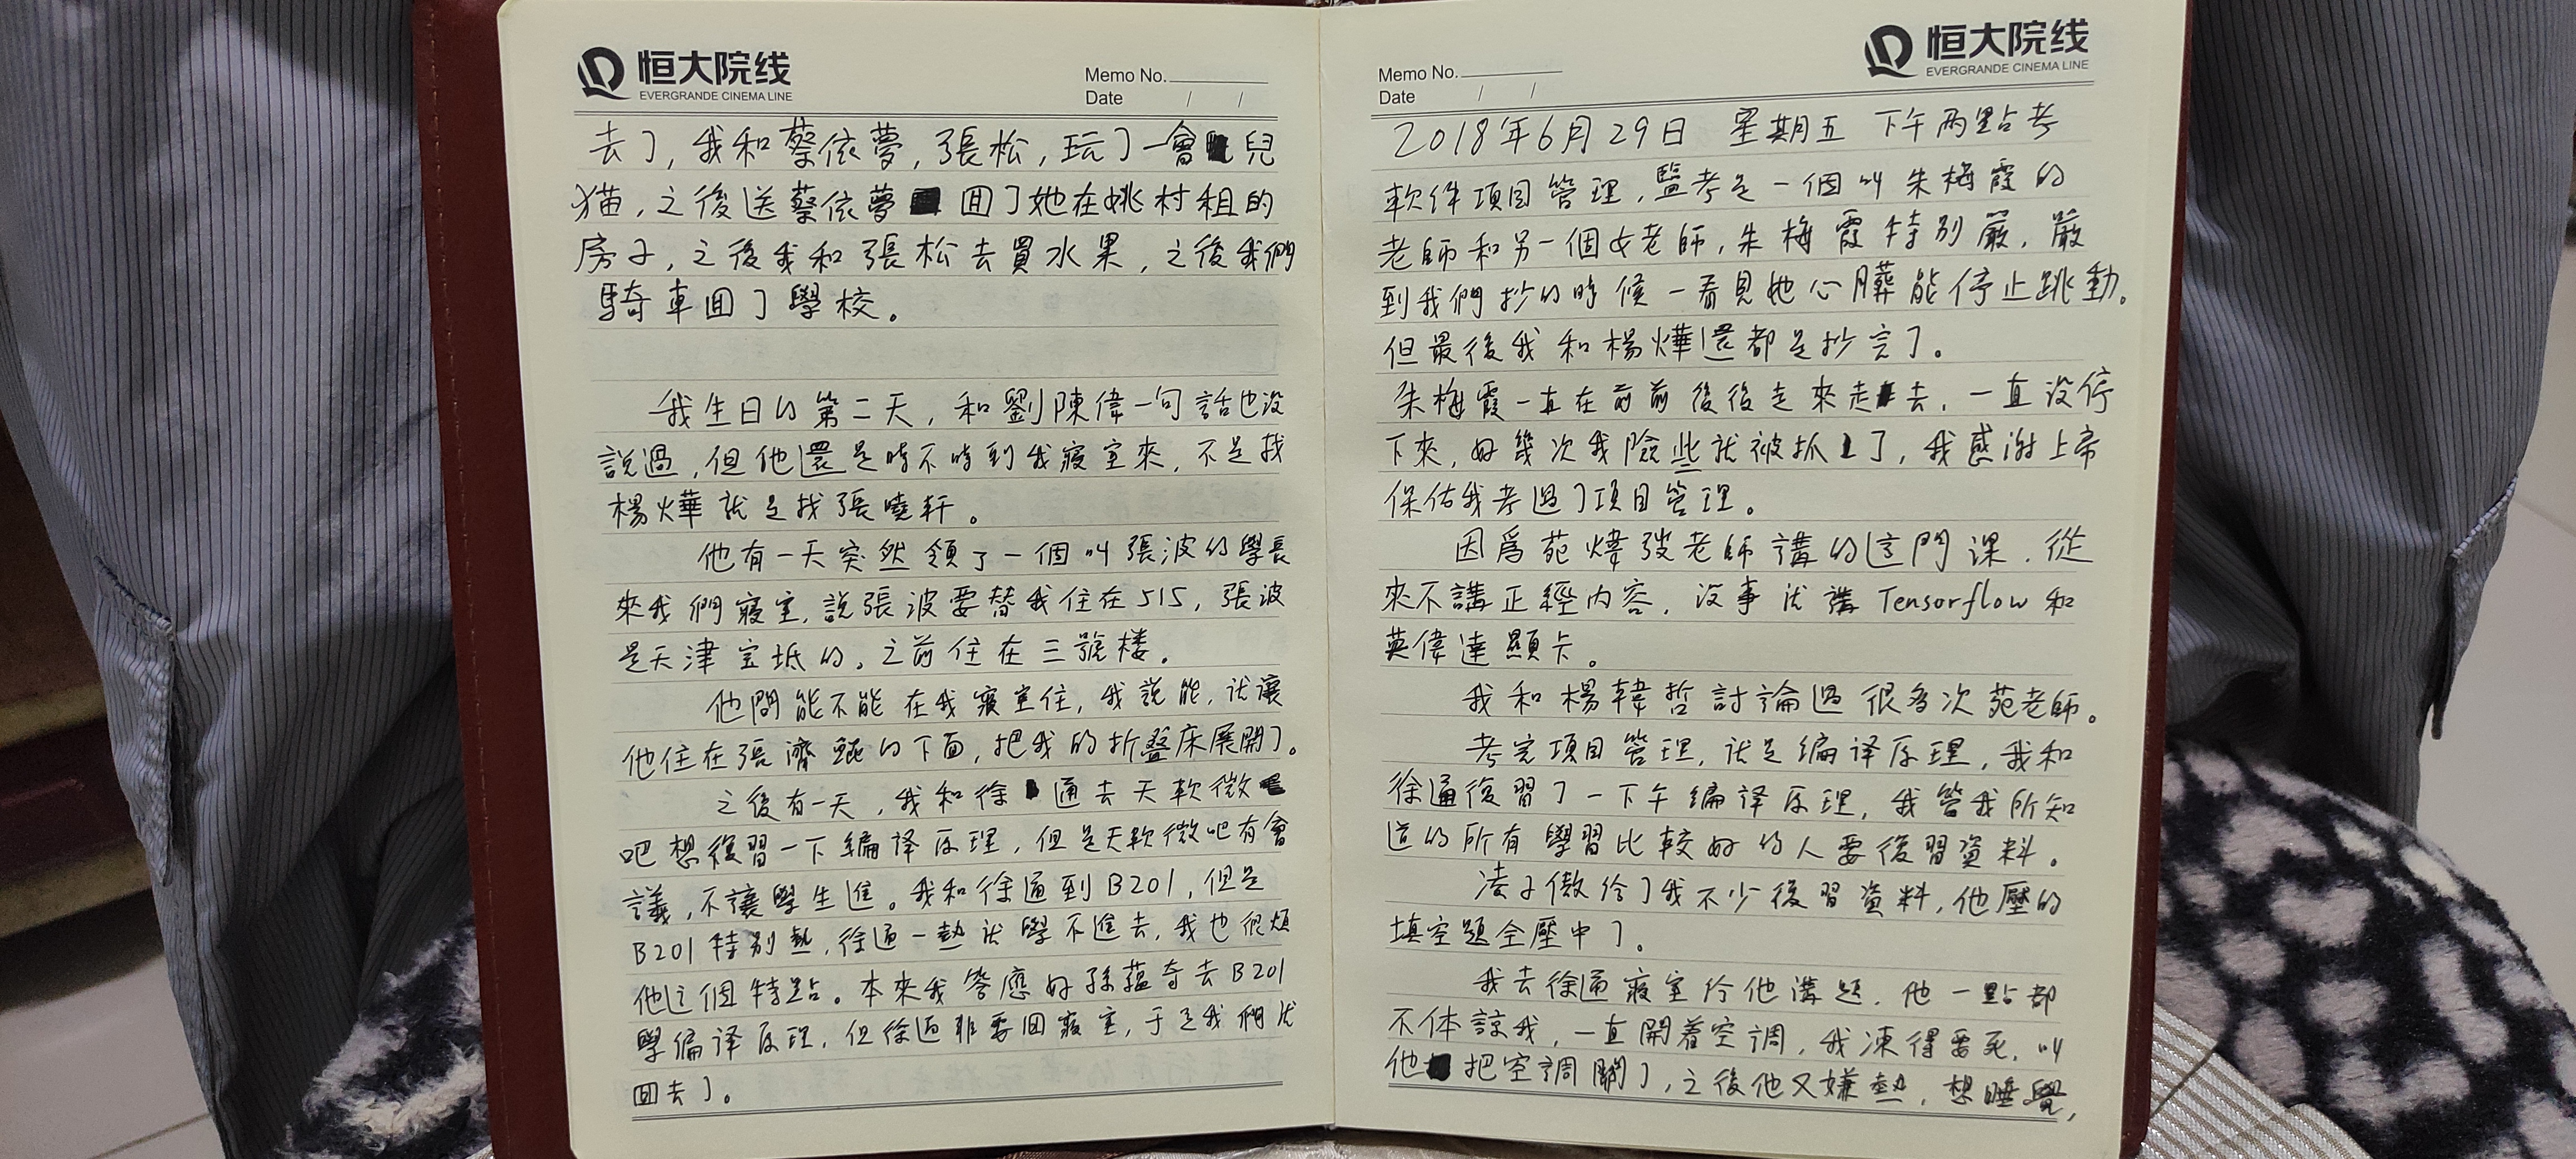 恒大院线
EVERGRANDE CINEMA LINE
Memo No.
Date / /
去了,我和蔡依夢,張松,玩了一會兒
猫,之後送蔡依夢回了她在姚村租的
房子,之後我和張松去買水果,之後我們
騎車回了學校。
我生日的第二天,和劉陳偉一句話也没
説過,但他還是時不時到我寢室來,不是找
楊燁就是找張曉軒。
他有一天突然領了一個叫張波的學長
來我們寢室,説張波要替我住在515,張波
是天津宝坻的。之前住在三號楼。
他問能不能在我寢室住,我説能,就讓
他住在張濟鯤的下面,把我的折叠床展開了。
之後有一天,我和徐通去天軟微
吧想復習一下编译原理,但是天軟微吧有會
議,不讓學生進。我和徐通到B201,但是
B201特别熱,徐通一熱就學不進去,我也很煩
他這個特點。本來我答應好孫蕴奇去B201
學编译原理,但徐通非要回寢室,于是我們就
回去了。
恒大院线
EVERGRANDE CINEMA LINE
Memo No.
Date / /
2018年6月29日 星期五 下午两點考
軟件項目管理,監考是一個叫朱梅霞的
老師和另一個女老師,朱梅霞特别嚴,嚴
到我們抄的時候一看見她心臟能停止跳動。
但最後我和楊燁還都是抄完了。
朱梅霞一直在前前後後走來走去,一直没停
下來,好幾次我險些就被抓了,我感谢上帝
保佑我考過了項目管理。
因爲苑煒弢老師講的這門课,從
來不講正經内容,没事就講Tensorflow和
英偉達顯卡。
我和楊韓哲討論過很多次苑老師。
考完項目管理,就是编译原理,我和
徐通復習了一下午编译原理,我管我所知
道的所有學習比較好的人要復習資料。
凌子傲给了我不少復習資料,他壓的
填空題全壓中了。
我去徐通寢室给他講題,他一點都
不体諒我,一直開着空調,我凍得要死,叫
他把空調關了,之後他又嫌熱,想睡覺,